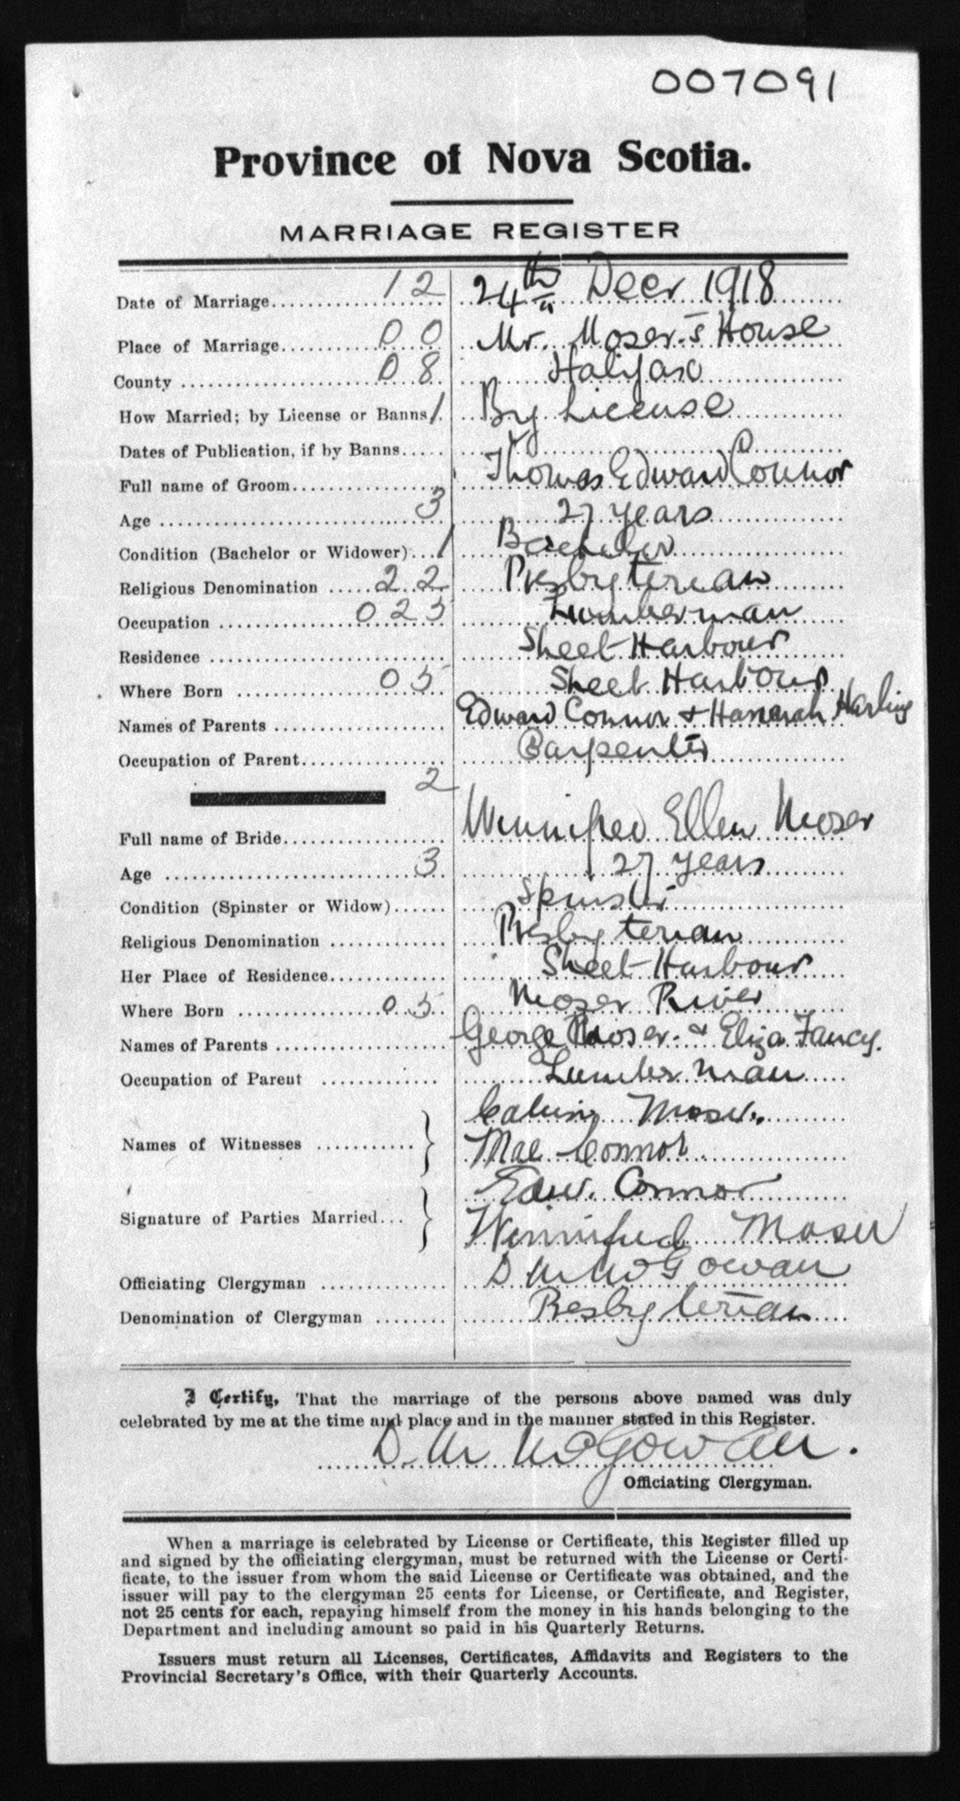 007091
Province of Nova Scotia.
MARRIAGE REGISTER
Date of Marriage.................. 12 24th Decr 1918
Place of Marriage................. 00 Mr. Moser's House
County ........................... 08 Halifax
How Married; by License or Banns 1 By License
Dates of Publication, if by Banns.....
Full name of Groom.................. Thomas Edward Connor
Age .......................... 3 27 years
Condition (Bachelor or Widower)... 1 Bachelor
Religious Denomination ..... 22 Presbyterian
Occupation ................ 025 Lumberman
Residence .......................... Sheet Harbour
Where Born ................ 05 Sheet Harbour
Names of Parents .................. Edward Connor & Hannah Harling
Occupation of Parent................ Carpenter
2
Full name of Bride.................. Winnifred Ellen Moser
Age .......................... 3 27 years
Condition (Spinster or Widow)...... Spinster
Religious Denomination ............ Presbyterian
Her Place of Residence............. Sheet Harbour
Where Born ................ 05 Moser River
Names of Parents .................. George Moser. & Eliza Fancy.
Occupation of Parent .............. Lumberman
Moser.
Names of Witnesses ............ } Mae Connor.
Edw. Connor
Signature of Parties Married... } Winnifred Moser
Officiating Clergyman ............. D M McGowan
Denomination of Clergyman ........ Presbyterian
I Certify, That the marriage of the persons above named was duly
celebrated by me at the time and place and in the manner stated in this Register.
D. M McGowan.
Officiating Clergyman.
When a marriage is celebrated by License or Certificate, this Register filled up
and signed by the officiating clergyman, must be returned with the License or Certi-
ficate, to the issuer from whom the said License or Certificate was obtained, and the
issuer will pay to the clergyman 25 cents for License, or Certificate, and Register,
not 25 cents for each, repaying himself from the money in his hands belonging to the
Department and including amount so paid in his Quarterly Returns.
Issuers must return all Licenses, Certificates, Affidavits and Registers to the
Provincial Secretary's Office, with their Quarterly Accounts.